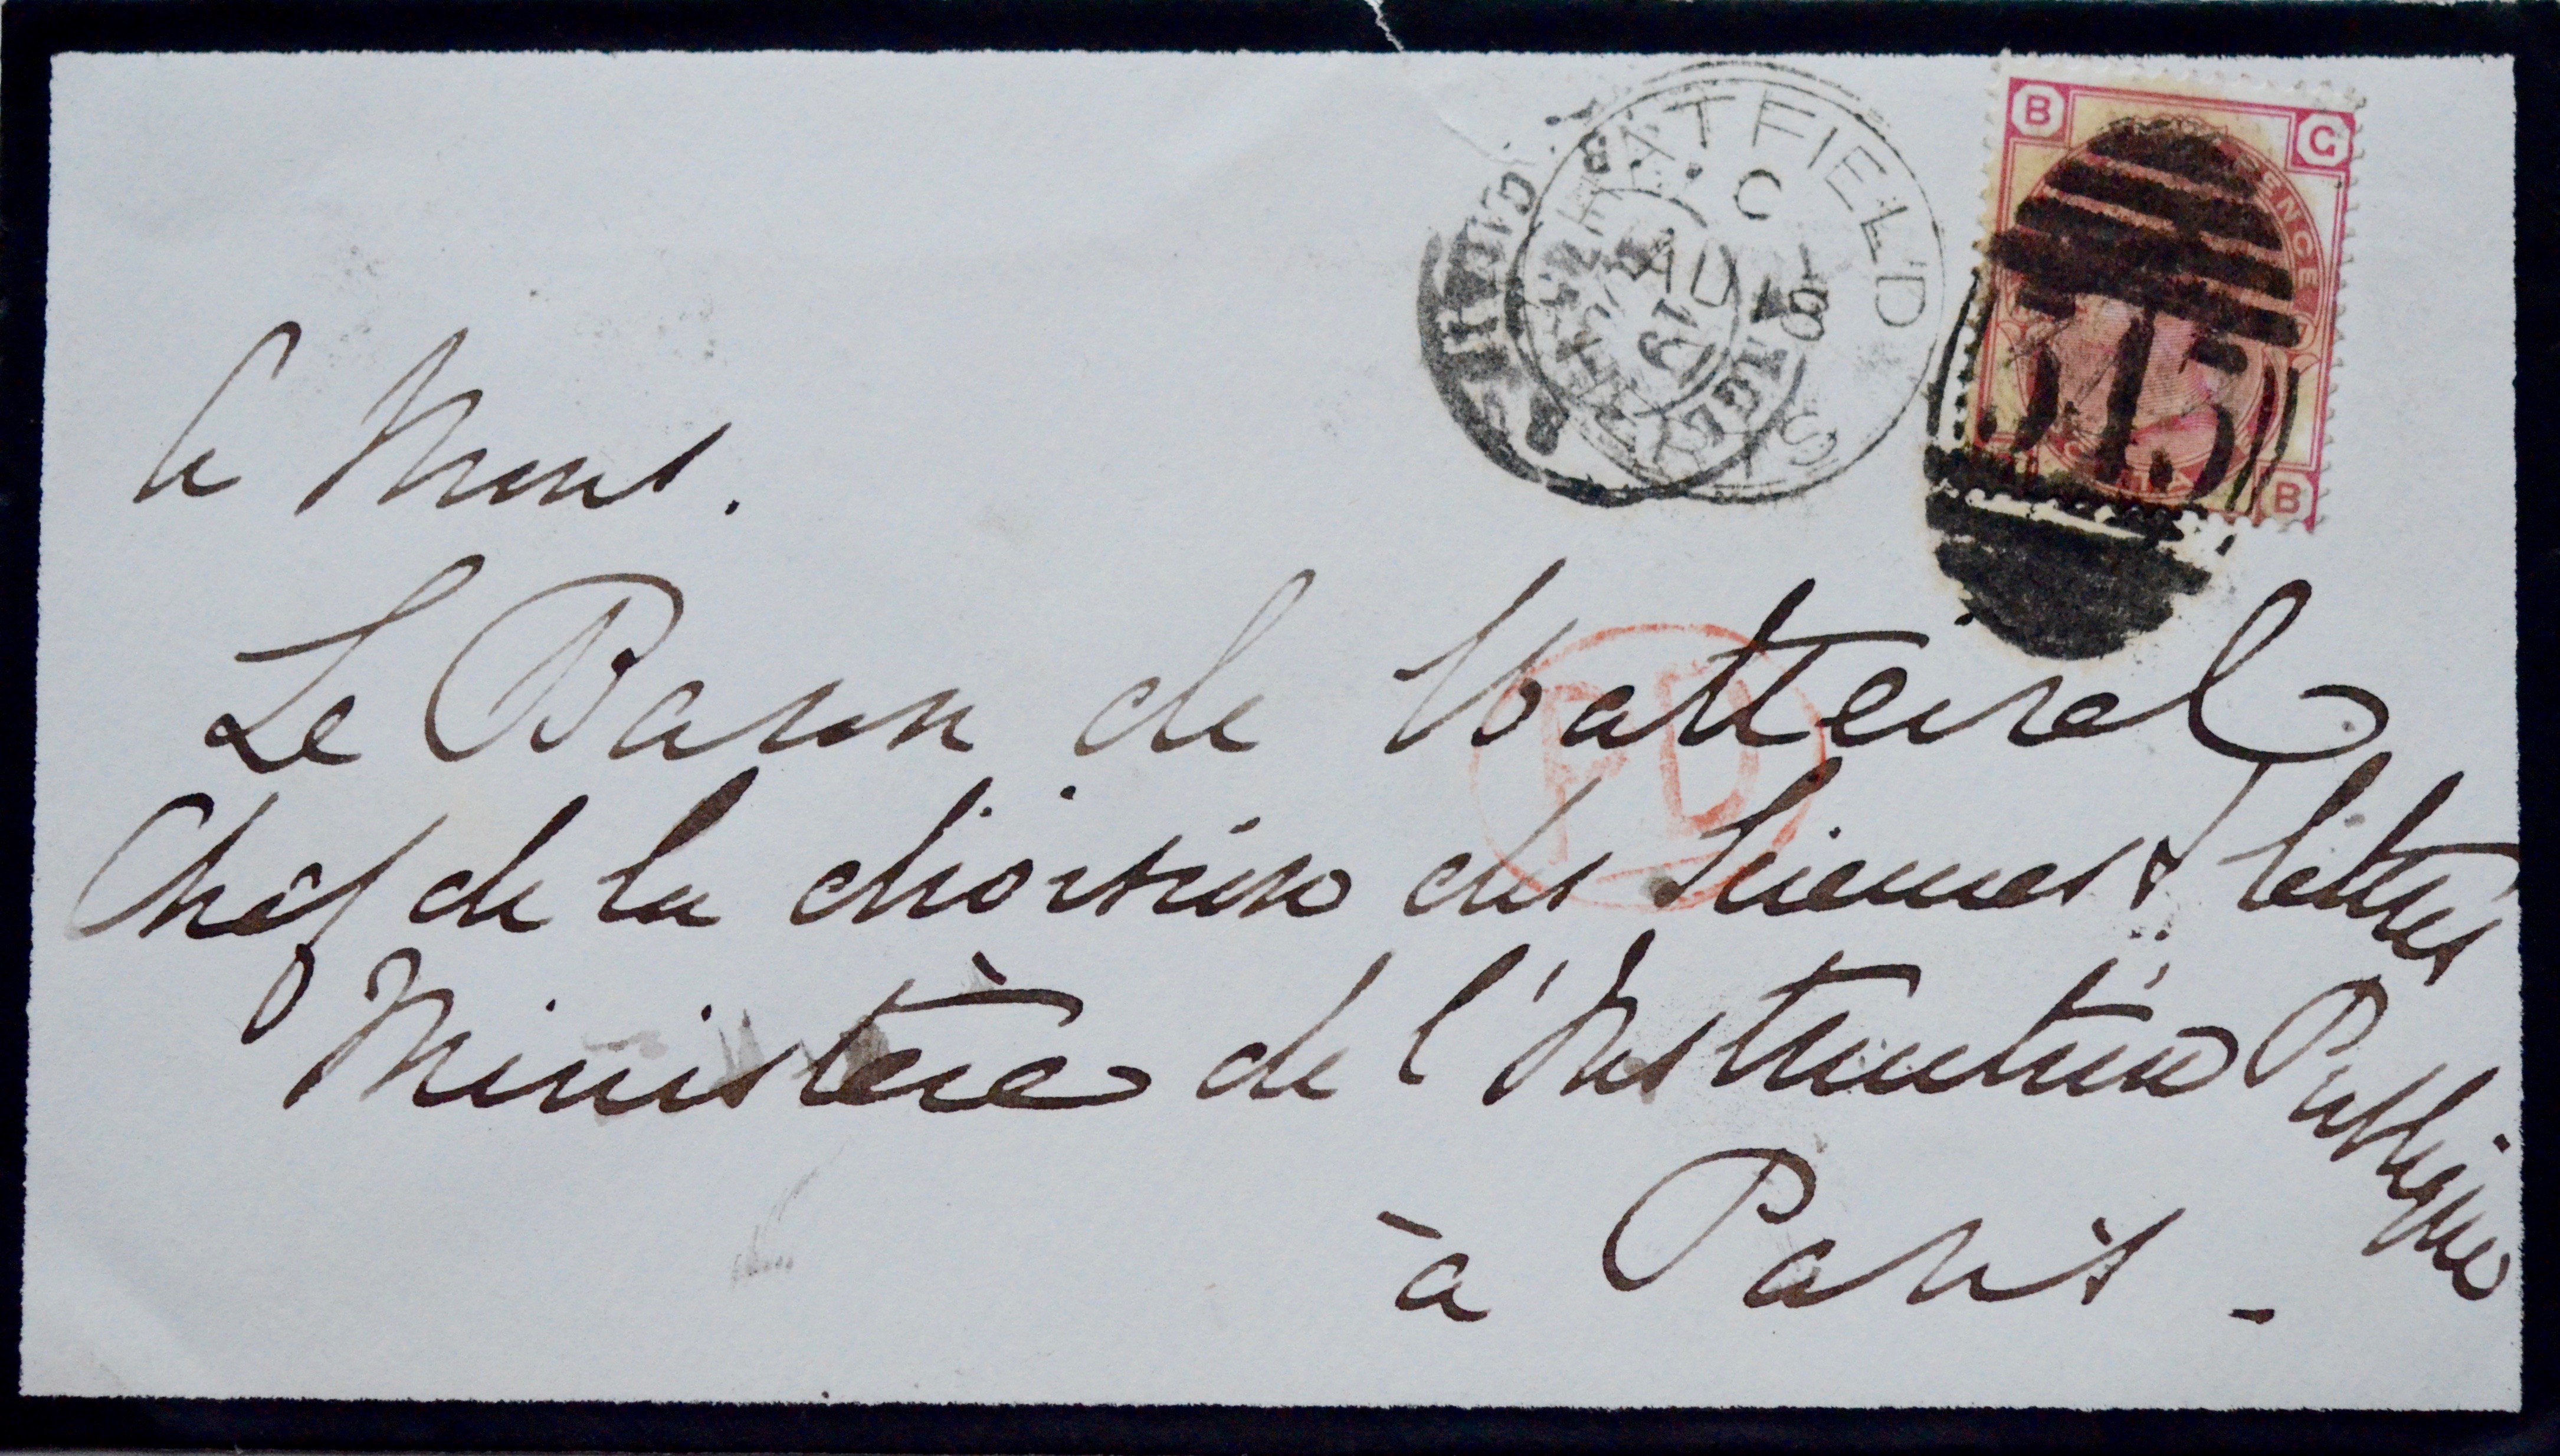 HATFIELD
C
AU 18
B
G
PENCE
515
B
PD
à Mons.
Le Baron de Watteville
Chef de la division des Sciences & lettres
Ministère de l'Instruction Publique
à Paris.